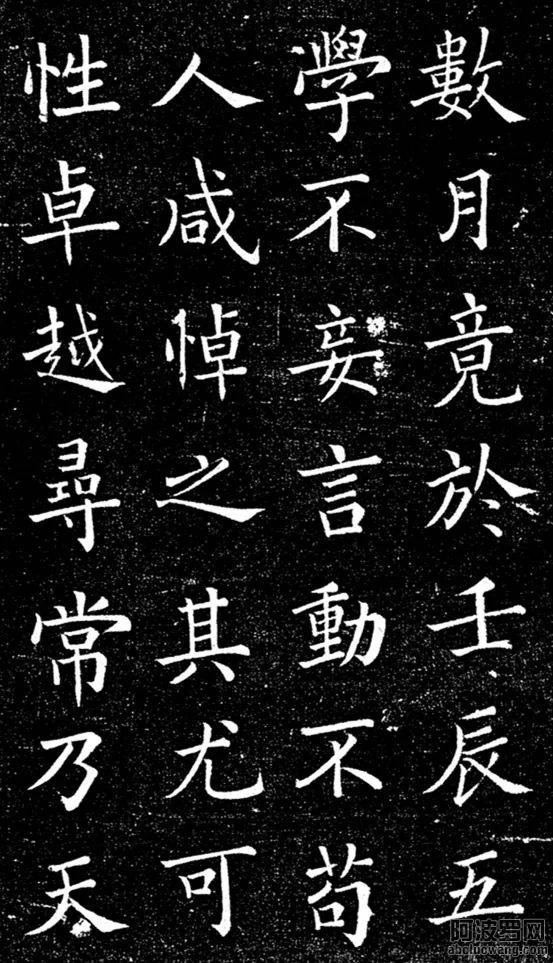 數月竟於壬辰五
學不妄言動不苟
人咸悼之其尤可
性卓越尋常乃天
阿波罗网
aboluowang.com